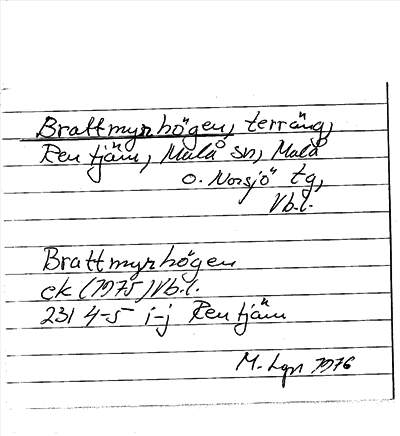 Brattmyrhögen, terräng,
Rentjärn, Malå sn, Malå
o. Norsjö tg,
Vb.l.
Brattmyrhögen
ek (1975) Vb.l.
231 4-5 i-j Rentjärn
M. Lgn 1976